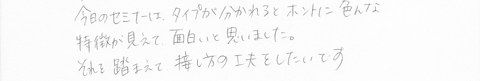 今日のセミナーは、タイプが分かれるとホントに色んな
特徴が見えて、面白いと思いました。
それを踏まえて、接し方の工夫をしたいです